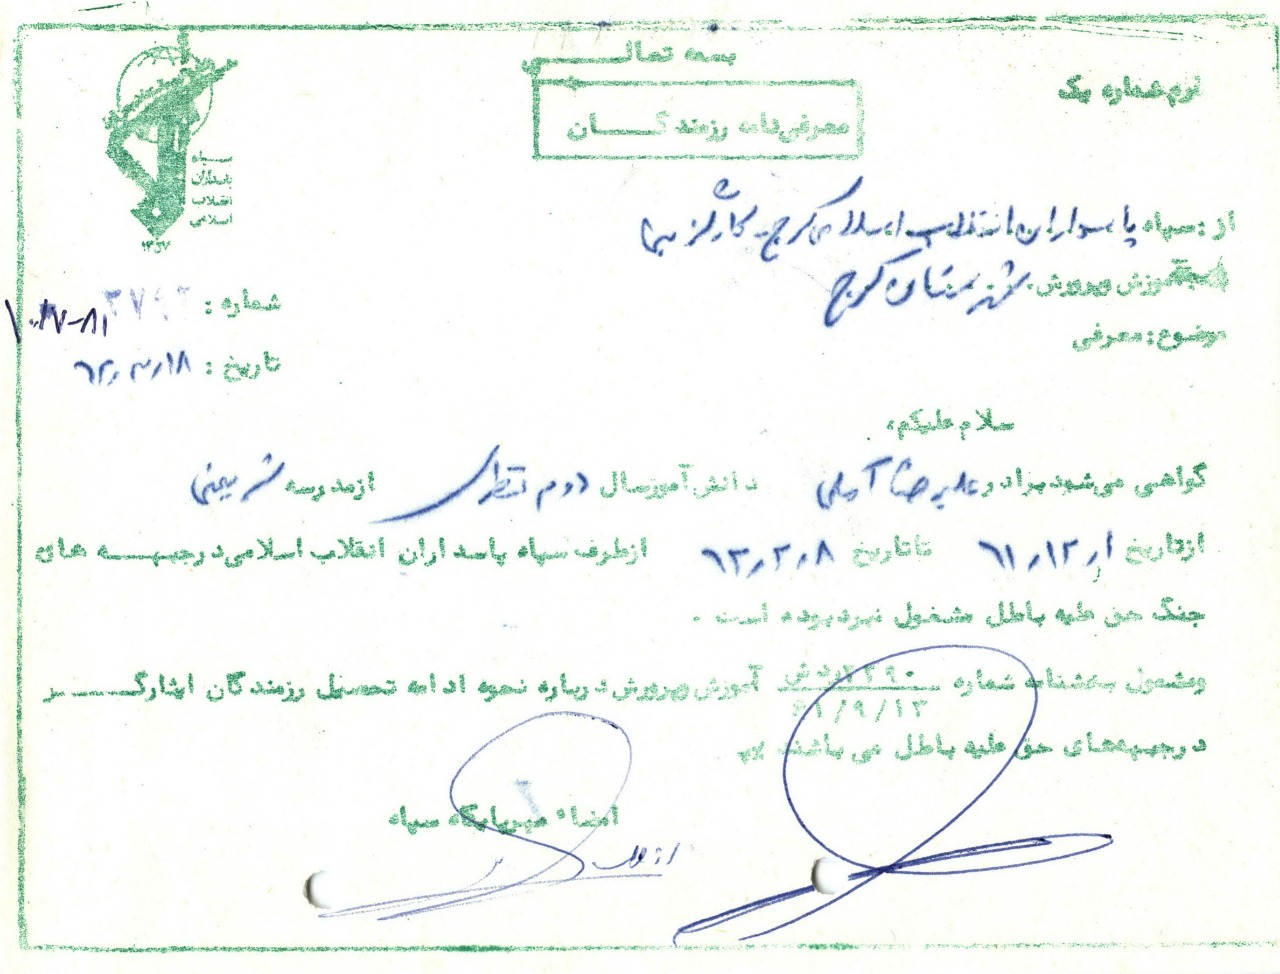 بسمه تعالی
فرم شماره یک
معرفی‌نامه رزمندگان
سپاه
پاسداران
انقلاب
اسلامی
از : سپاه پاسداران انقلاب اسلامی کرج
به : آموزش وپرورش شهرستان کرج
شماره :
موضوع : معرفی
تاریخ : ۶۲٫۳٫۱۸
سلام علیکم ،
گواهی می‌شود برادر علیرضا آملی دانش‌آموز سال دوم نظری از مدرسه شریعتی
از تاریخ ۶۱٫۱۲٫۱ تا تاریخ ۶۲٫۳٫۸ از طرف سپاه پاسداران انقلاب اسلامی در جبهه های
جنگ حق علیه باطل مشغول نبرد بوده است .
ومشمول بخشنامه شماره ۶۱/۹/۱۳ آموزش وپرورش درباره نحوه ادامه تحصیل رزمندگان ایثارگر
در جبهه‌های حق علیه باطل می باشند
امضاء مهر پایگاه سپاه